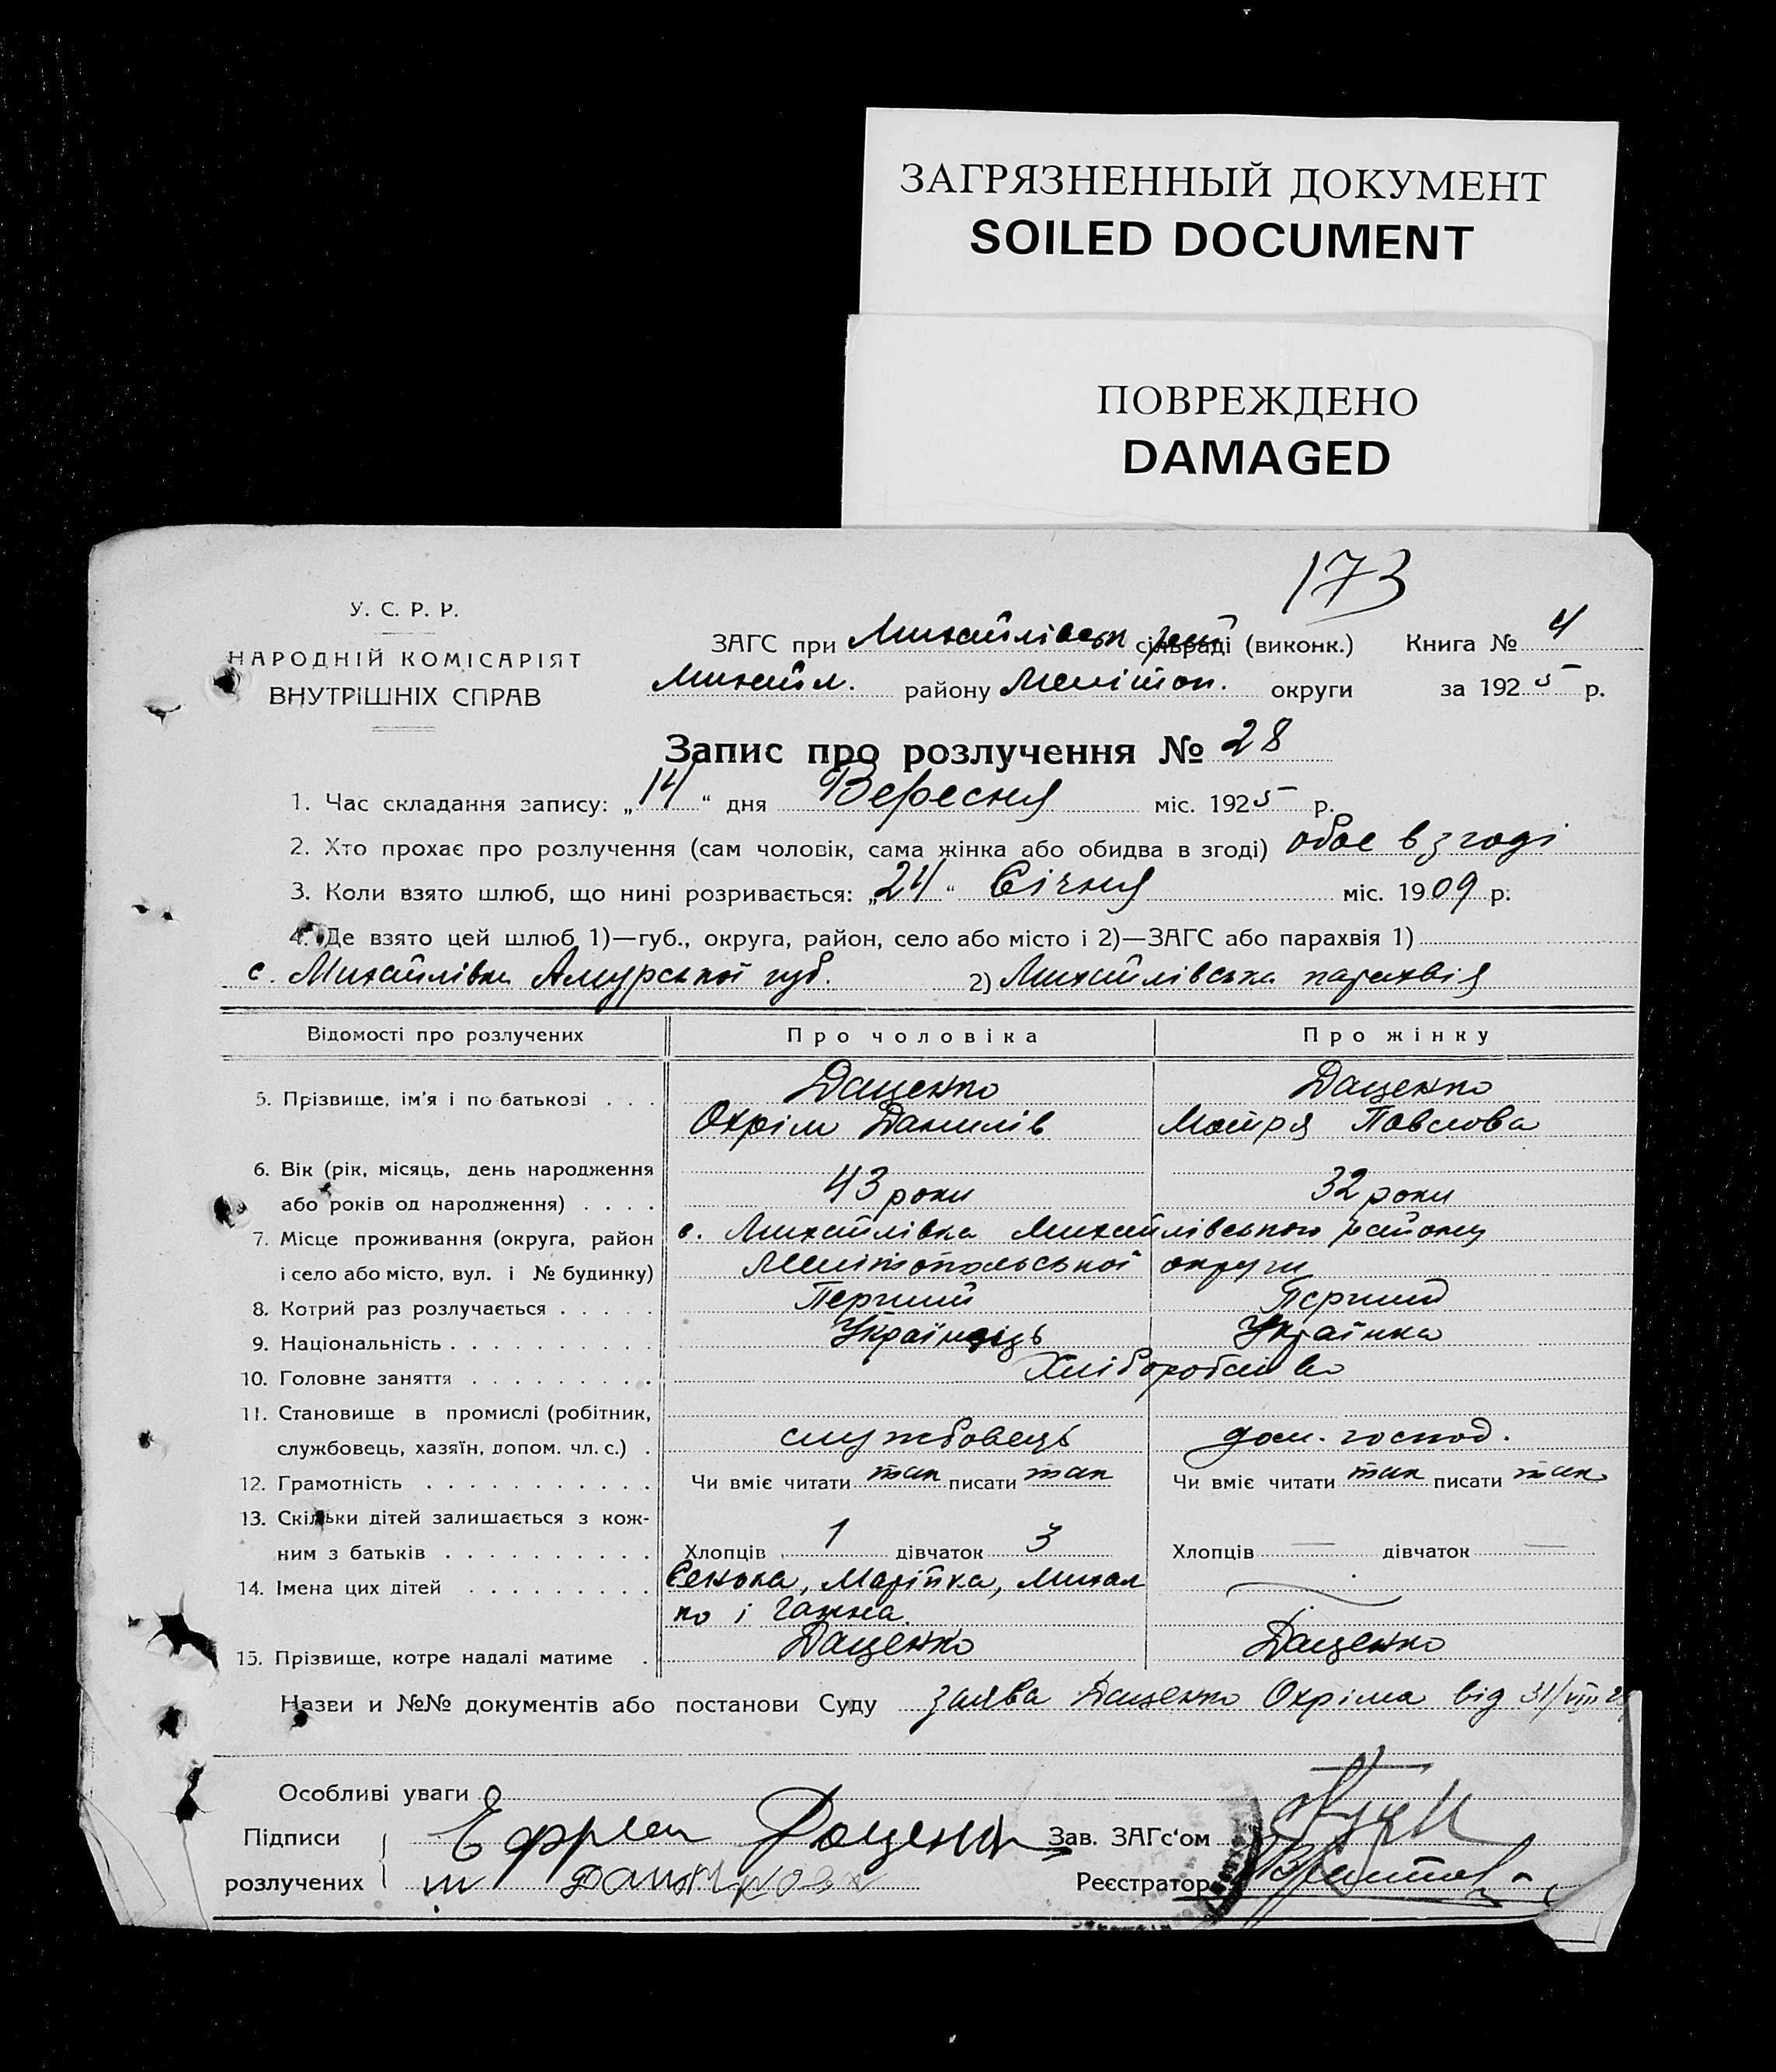 ЗАГРЯЗНЕННЫЙ ДОКУМЕНТ
SOILED DOCUMENT
ПОВРЕЖДЕНО
DAMAGED
173
У. С. Р. Р.
НАРОДНІЙ КОМІСАРІЯТ
ВНУТРІШНІХ СПРАВ
ЗАГС при Михайлівськ сільраді (виконк.) Книга № 4
Михайл. району Меліт оп. округи за 1925 р.
Запис про розлучення № 28
1. Час складання запису: „14“ дня Вересня міс. 1925 р.
2. Хто прохає про розлучення (сам чоловік, сама жінка або обидва в згоді) обоє в згоді
3. Коли взято шлюб, що нині розривається: „24“ Січня міс. 1909 р.
4. Де взято цей шлюб 1)—губ., округа, район, село або місто і 2)—ЗАГС або парахвія 1)
с. Михайлівка Амурської губ. 2) Михайлівська парахвія
Відомості про розлучених Про чоловіка Про жінку
5. Прізвище, ім'я і по-батькові . . . Даценко Даценко
Охрім Данилів Мотря Павлова
6. Вік (рік, місяць, день народження
або років од народження) . . . . 43 роки 32 роки
7. Місце проживання (округа, район с. Михайлівка Михайлівського району
і село або місто, вул. і № будинку) Мелітопольської округи
8. Котрий раз розлучається . . . . . Перший Перший
9. Національність . . . . . . . . . . Українець Українка
10. Головне заняття . . . . . . . . . Хліборобство
11. Становище в промислі (робітник,
службовець, хазяїн, допом. чл. с.) . службовець дом. господ.
12. Грамотність . . . . . . . . . . . Чи вміє читати так писати так Чи вміє читати так писати так
13. Скільки дітей залишається з кож-
ним з батьків . . . . . . . . . . Хлопців 1 дівчаток 3 Хлопців — дівчаток —
14. Імена цих дітей . . . . . . . . . Марійка, Михал
ко і Ганна.
15. Прізвище, котре надалі матиме . Даценко Даценко
Назви и №№ документів або постанови Суду заява Даценко Охріма від 31/VIII 25
Особливі уваги
Підписи Ефрем Доценко Зав. ЗАГс'ом
розлучених Реєстратор